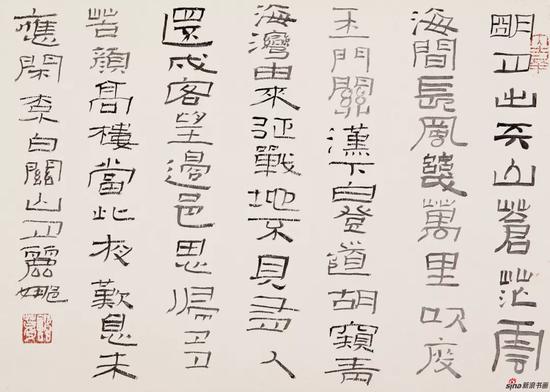 明月出天山蒼茫雲
海間長風幾萬里吹度
玉門關漢下白登道胡窺青
海灣由來征戰地不見有人
還戍客望邊邑思歸多
苦顏高樓當此夜歎息未
應閑李白關山月麗
sina新浪书画